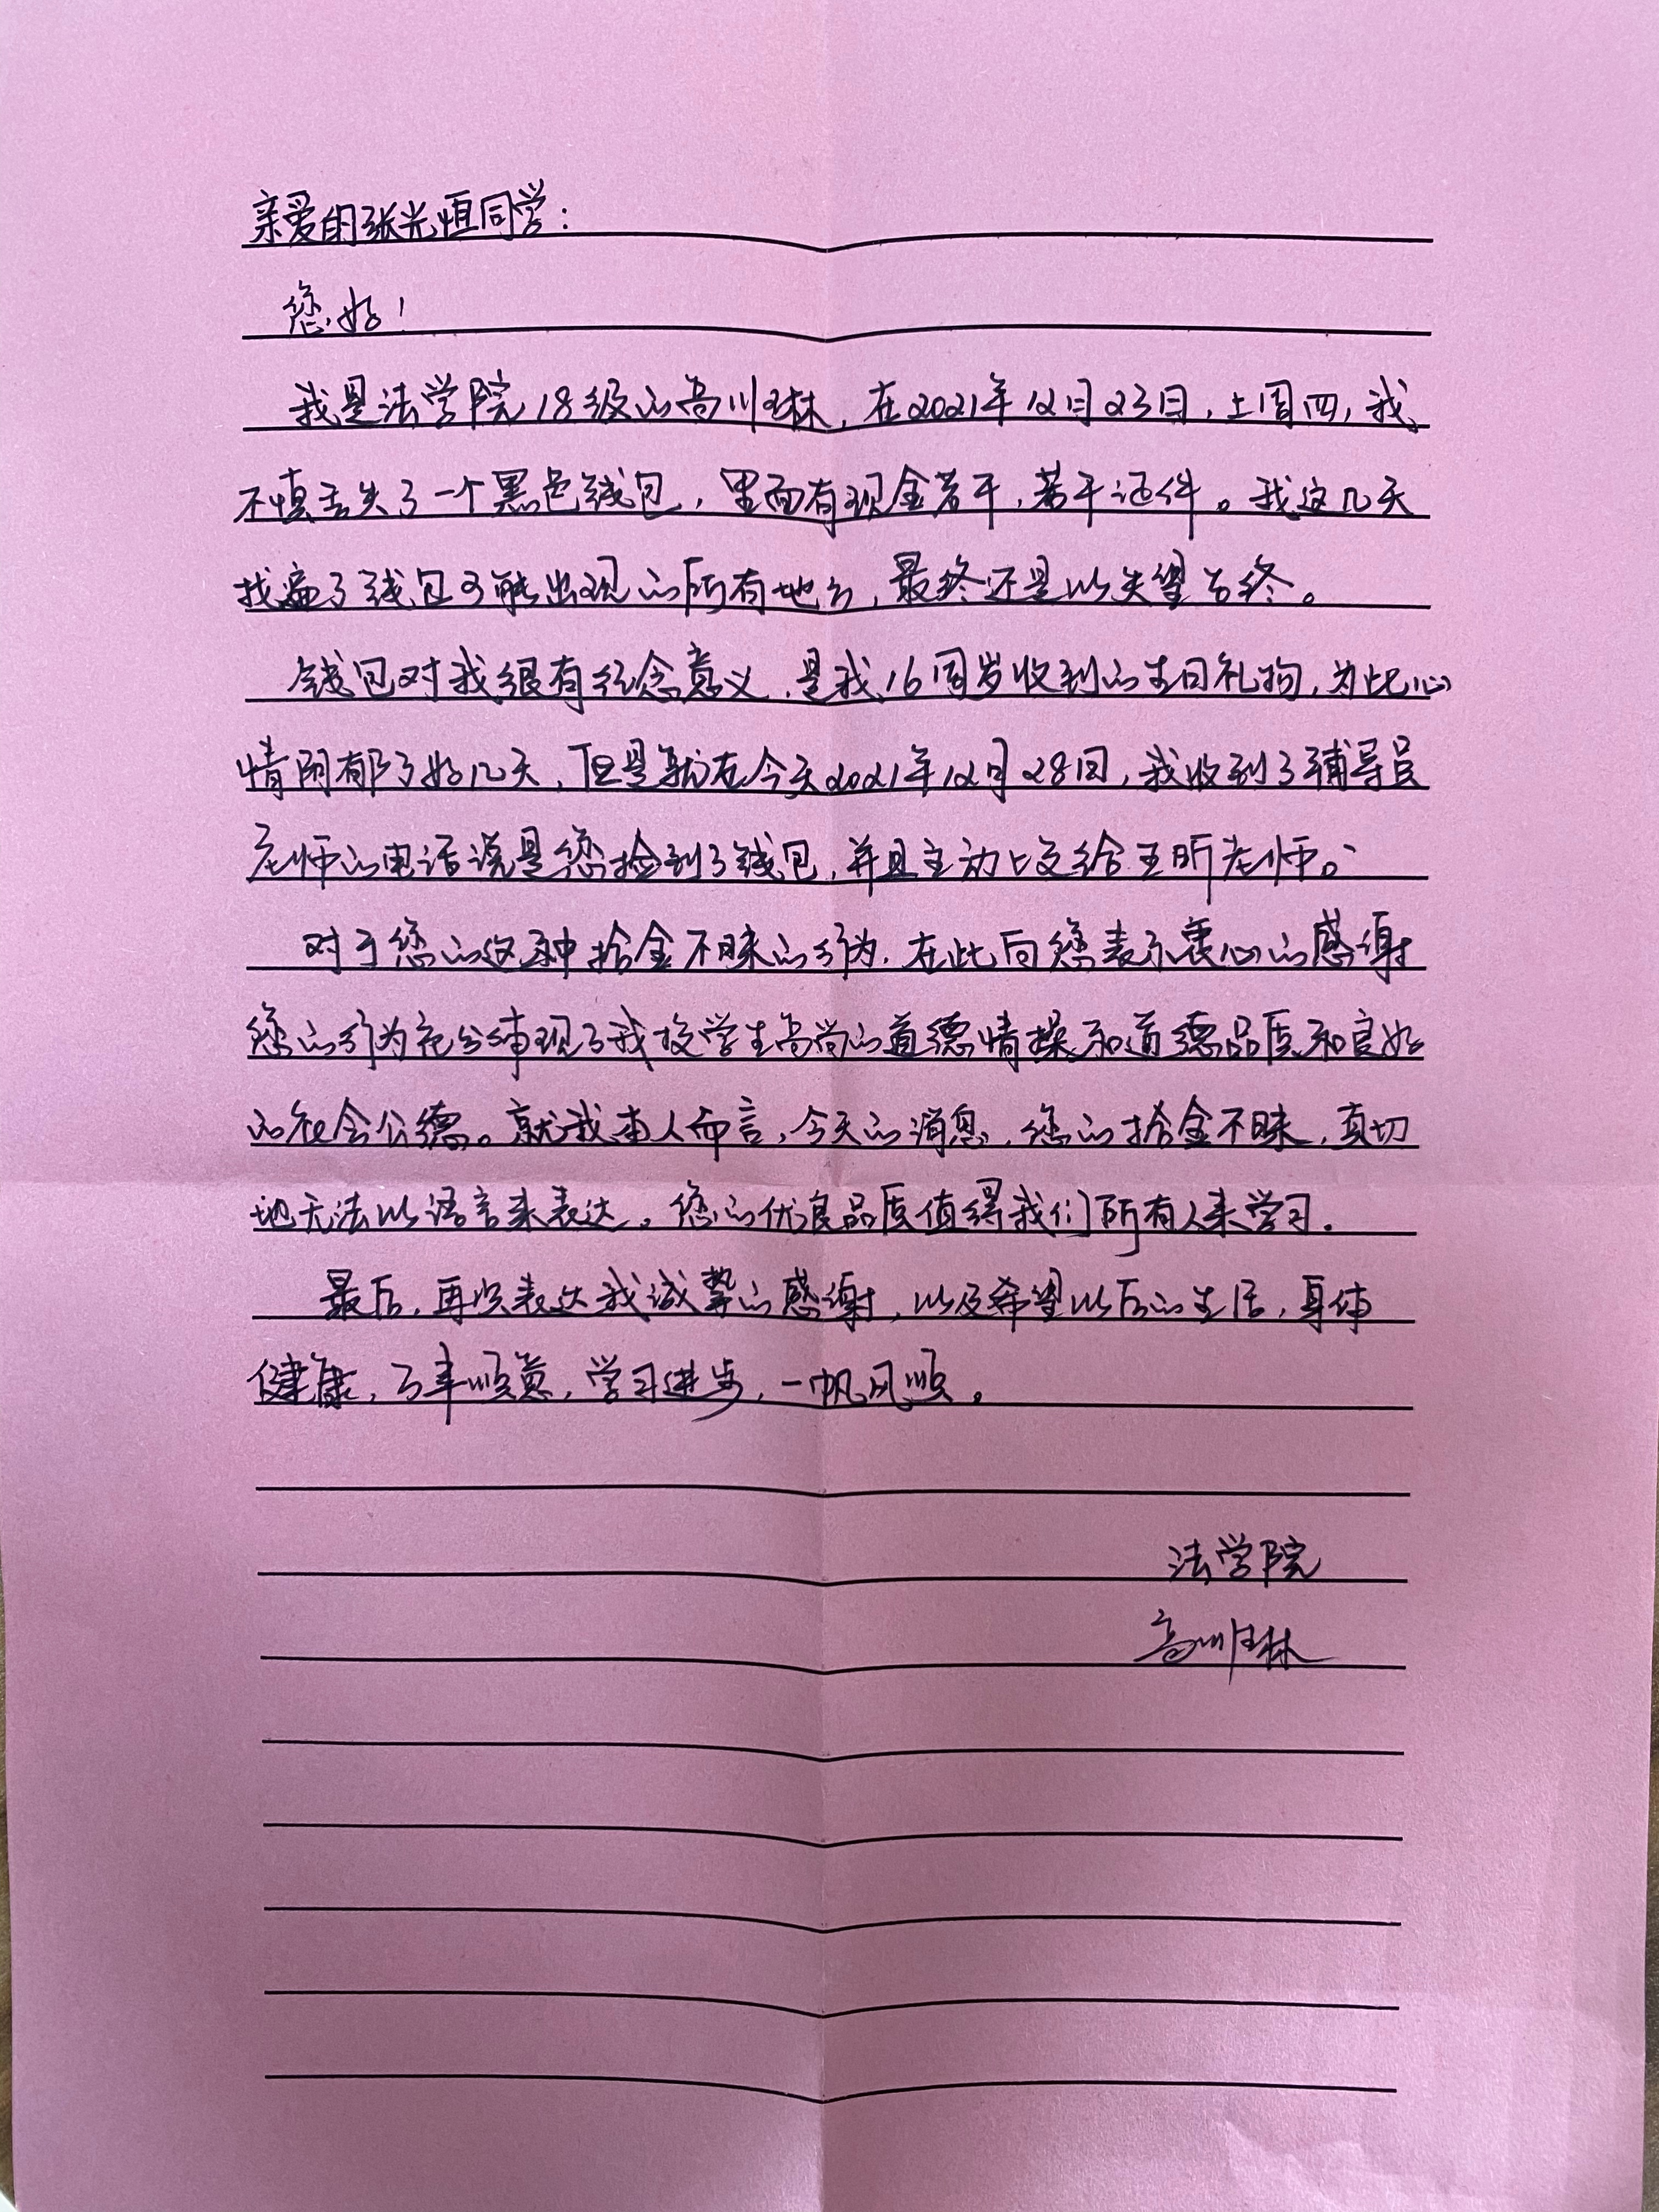 亲爱的张光恒同学：
您好！
我是法学院18级的高川琳，在2021年12月23日，上周四，我
不慎丢失了一个黑色钱包，里面有现金若干，若干证件。我这几天
找遍了钱包可能出现的所有地方，最终还是以失望告终。
钱包对我很有纪念意义，是我16周岁收到的生日礼物，为此心
情阴郁了好几天，但是就在今天2021年12月28日，我收到了辅导员
老师的电话说是您捡到了钱包，并且主动上交给王昕老师。
对于您的这种拾金不昧的行为，在此向您表示衷心的感谢
您的行为充分体现了我校学生高尚的道德情操和道德品质和良好
的社会公德。就我本人而言，今天的消息，您的拾金不昧，真切
地无法以语言来表达。您的优良品质值得我们所有人来学习。
最后，再次表达我诚挚的感谢，以及希望以后的生活，身体
健康，万事顺意，学习进步，一帆风顺。
法学院
高川琳